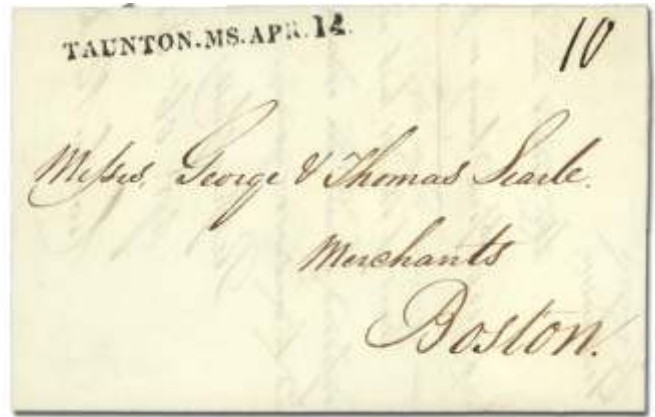 TAUNTON.MS.APR.12.
10
Messrs. George & Thomas Searle.
Merchants
Boston.